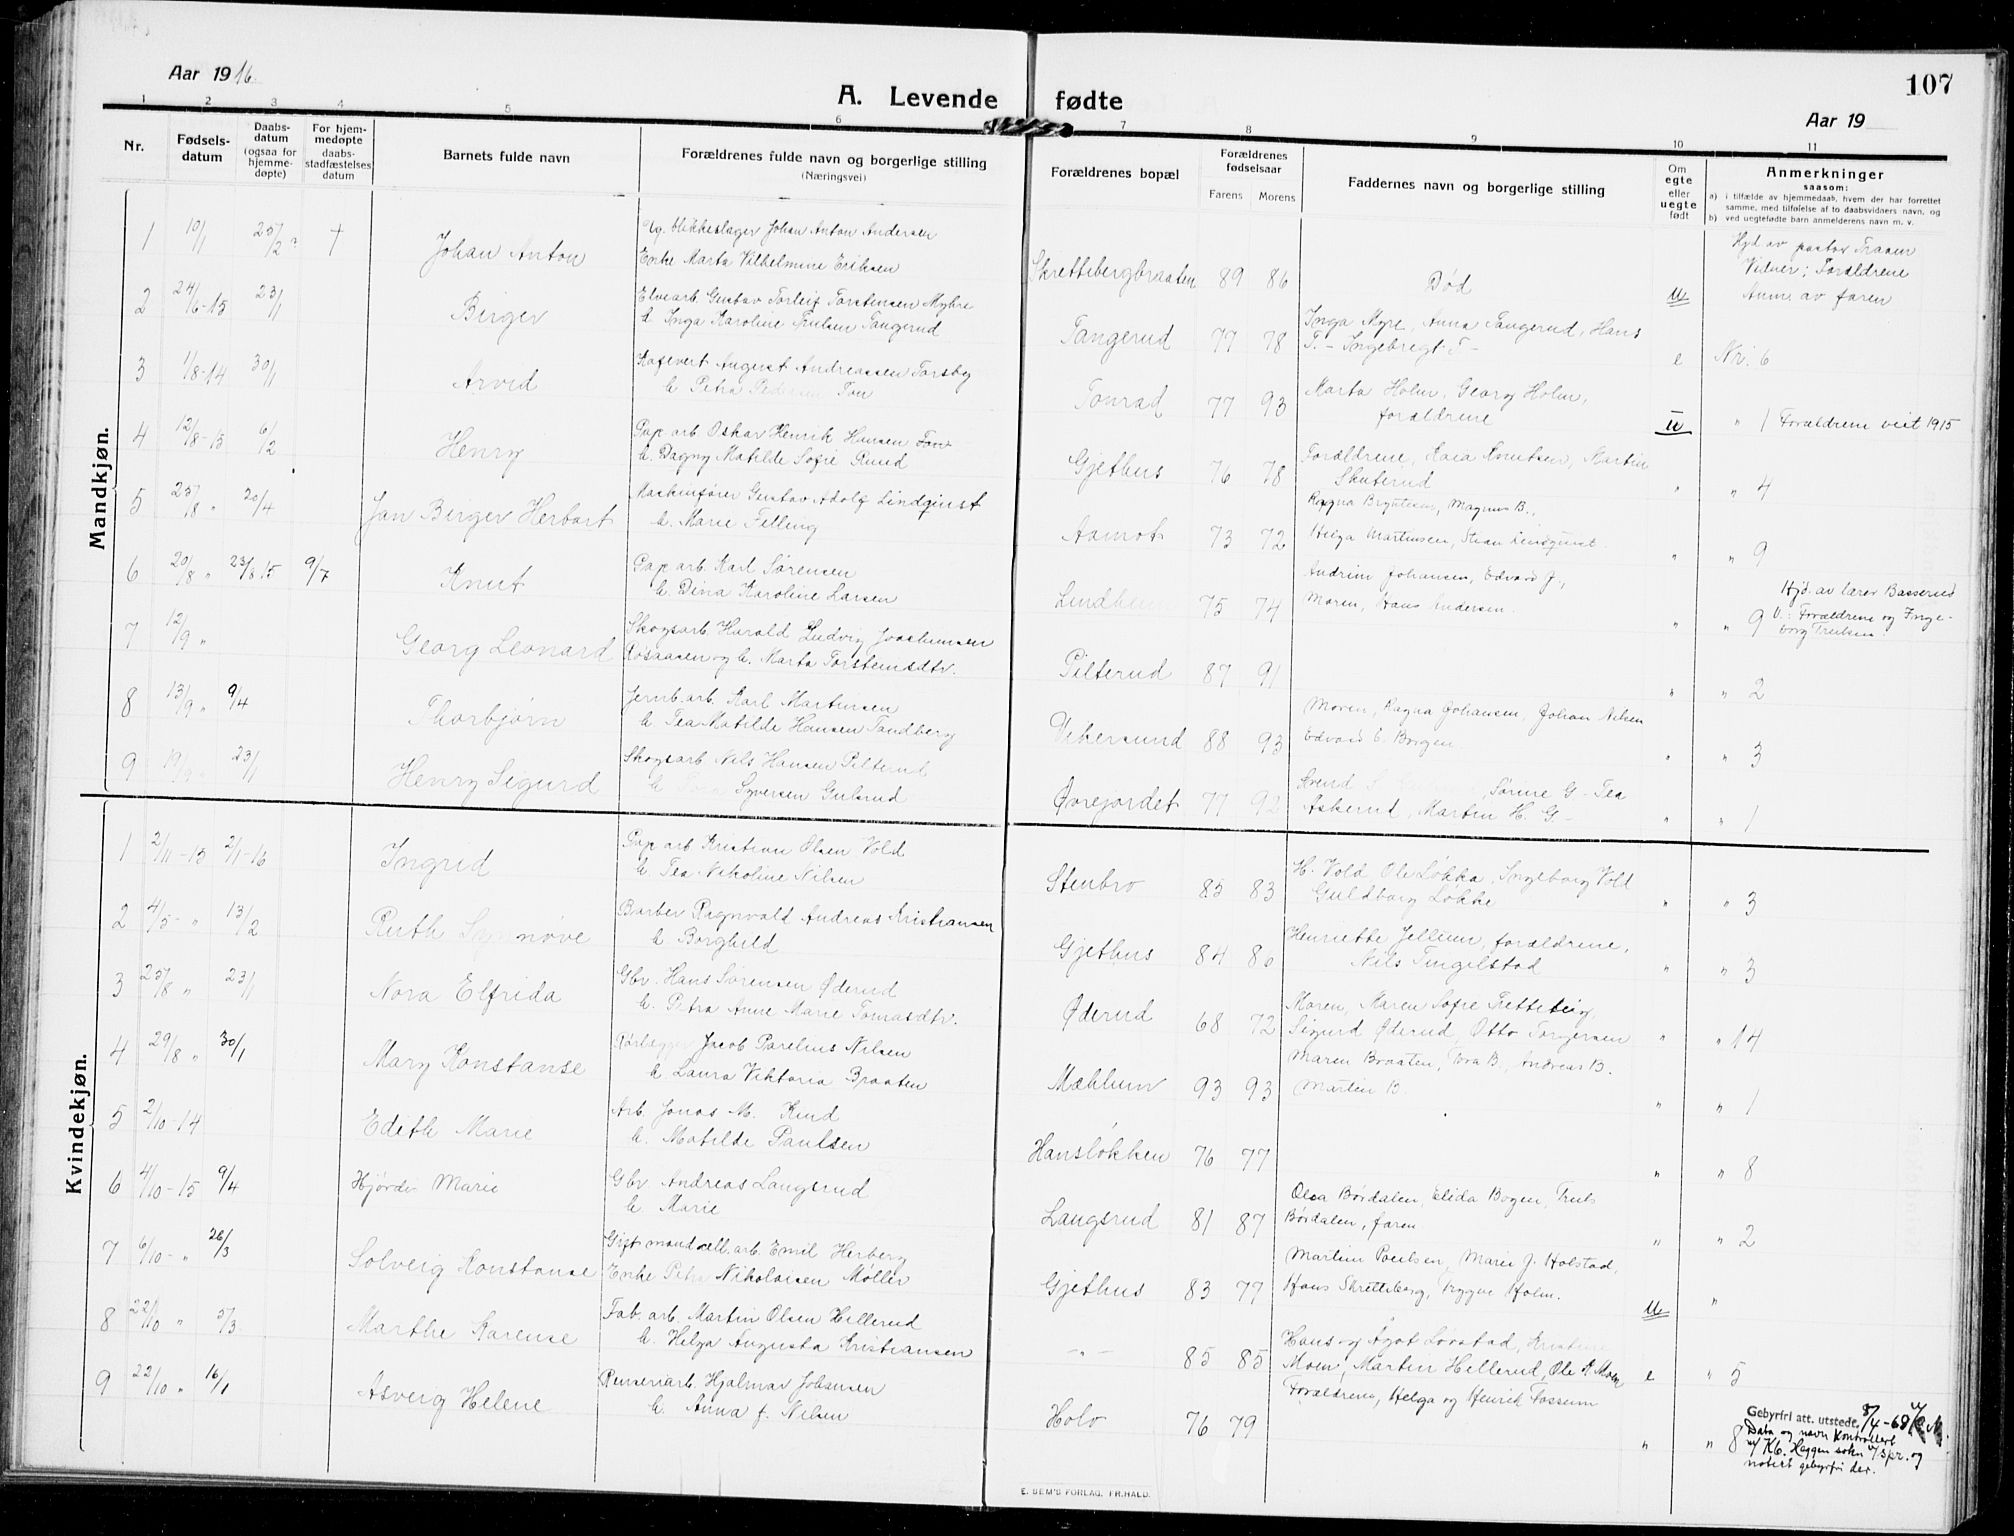 Aar 1916.
A. Levende fødte
107
Aar 19
1 2 3 4 5 6 7 8 9 10 11
Nr.
Fødsels-
datum
Daabs-
datum
(ogsaa for
hjemme-
døpte)
For hjem-
medøpte
daabs-
stadfæstelses
datum
Barnets fulde navn
Forældrenes fulde navn og borgerlige stilling
(Næringsvei)
Forældrenes bopæl
Forældrenes
fødselsaar
Farens Morens
Faddernes navn og borgerlige stilling
Om
egte
eller
uegte
født
Anmerkninger
saasom:
a) i tilfælde av hjemmedaab, hvem der har forrettet
samme, med tilføielse av to daabsvidners navn, og
b) ved uegtefødte barn anmelderens navn m. v.
Mandkjøn.
1 10/1 25/2 † Johan Anton
Ug. blikkeslager Johan Anton Andersen
Enke Marta Vilhelmine Eriksen
Skrettebergbraaten 89 86 Død u
Hjd av pastor Traaen
Vidner: Forældrene
Anm. av faren
2 24/6-15 23/1 Birger
Elvearb. Gustav Torleif Torstensen Myhre
h. Inga Karoline Trulsen Tangerud
Tangerud 77 78
Inga Myre, Anna Tangerud, Hans
T. - Ingebregt T - e Nr. 6
3 1/8-14 30/1 Arvid
Kafevert August Andreassen Torsby
h. Petra Pedersen Ton
Tonrad 77 93
Marta Holm, Georg Holm,
forældrene u " 1 Forældrene viet 1915
4 12/8-15 6/2 Henry
Pap. arb. Oskar Henrik Hansen
h. Dagny Matilde Sofie Ruud
Gjethus 76 78
Forældrene, Kaia Knutsen, Martin
Skuterud " " 4
5 25/8 " 20/4 Jan Birger Herbart
Maskinfører Gustav Adolf Lindqvist
h. Marie Felling
Aamot 73 72
Ragna Bryntesen, Magnus B.,
Helga Martinsen, " " 9
6 20/8 " 23/8 15 9/7 Knut
Pap. arb. Karl Sørensen
h. Dina Karoline Larsen
75 74
Andrine Johansen, Edvard J.,
Moren, Hans Andersen. " " 9
Hjd. av lærer Basserud
V.: Forældrene og Inge-
borg Trulsen.
7 12/9 " Georg Leonard
Skogsarb. Harald Ludvig Joachimsen
og h. Marta Torsteinsdtr.
Pilterud 87 91 " " 2
8 13/9 " 9/4 Thorbjørn
Jernb. arb. Karl Martinsen
h. Tea Matilde Hansen Tandberg
Vikersund 88 93
Moren, Ragna Johansen, Johan Nilsen
Edvard E. Borgen. " " 3
9 19/9 " 23/1 Henry Sigurd
Skogsarb. Nils Hansen Pilterud
h. Syversen Gulsrud
Øvrejordet 77 92
Svend , Sørine G - Tea
Askerud, Martin H. G - " " 1
Kvindekjøn.
1 2/11-15 2/1-16 Ingrid
Pap. arb. Kristian Olsen Vold
h. Tea Nikoline Nilsen
Stenbro 85 83
H. Vold Ole Løkka, Ingeborg Vold
Guldborg Løkke " " 3
2 4/5- " 13/2 Ruth Synnøve
Barber Ragnvald Andreas Kristiansen
h. Borghild
Gjethus 84 86
Henriette Jellum, forældrene,
Nils Tingelstad " " 3
3 25/8 " 23/1 Nora Elfrida
Gbr. Hans Sørensen Øderud
h. Petra Anne Marie Tomasdtr.
Øderud 68 72
Moren, Maren Sofie Tretteteig,
Sigurd Øderud, Otto Torgersen " " 14
4 29/8 " 30/1 Mary Konstanse
Rørlægger Jacob Parelius Nilsen
h. Laura Viktoria Braaten
Mæhlum 93 93
Maren Braaten, Tora B., Andreas B.
Martin B. " " 1
5 2/10-14 Edith Marie
Arb. Jonas M. Rud
h. Matilde Paulsen
Hansløkken 76 77 " " 8
6 4/10-15 9/4 Hjørdis Marie
Gbr. Andreas Langsrud
h. Marie
Langsrud 81 87
Olea Børdalen, Elida Bogen, Truls
Børdalen, faren " " 2
7 6/10- " 26/3 Solveig Konstanse
Gift mand cell. arb. Emil Herberg
Enke Petra Nikolaisen Møller
Gjethus 83 77
Martin Poulsen, Marie J. Holstad,
Hans Skretteberg, Trygve Holm. u "
8 22/10 " 5/3 Marthe Karense
Fab. arb. Martin Olsen Hillerud
h. Helga Augusta Kristiansen
- " - 85 85
Hans og Agot Løvstad, Kristine
Moen, Martin Hillerud, Ole A Moen e " 5
9 22/10 " 16/1 Asveig Helene
Renseriarb. Hjalmar Johansen
h. Anna f. Nilsen
Holo 76 79
Forældrene, Helga og Henrik Fossum
" " 8
Gebyrfri att. utstedt. 8/4-68
Data og navn kontrollert
v/ Kb. Heggen sokn v/ spr. og
notert gebyrfri der.
E. SEM'S FORLAG, FR.HALD.